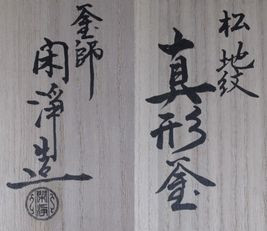 松地紋
真形釜
釜師
閑浄造